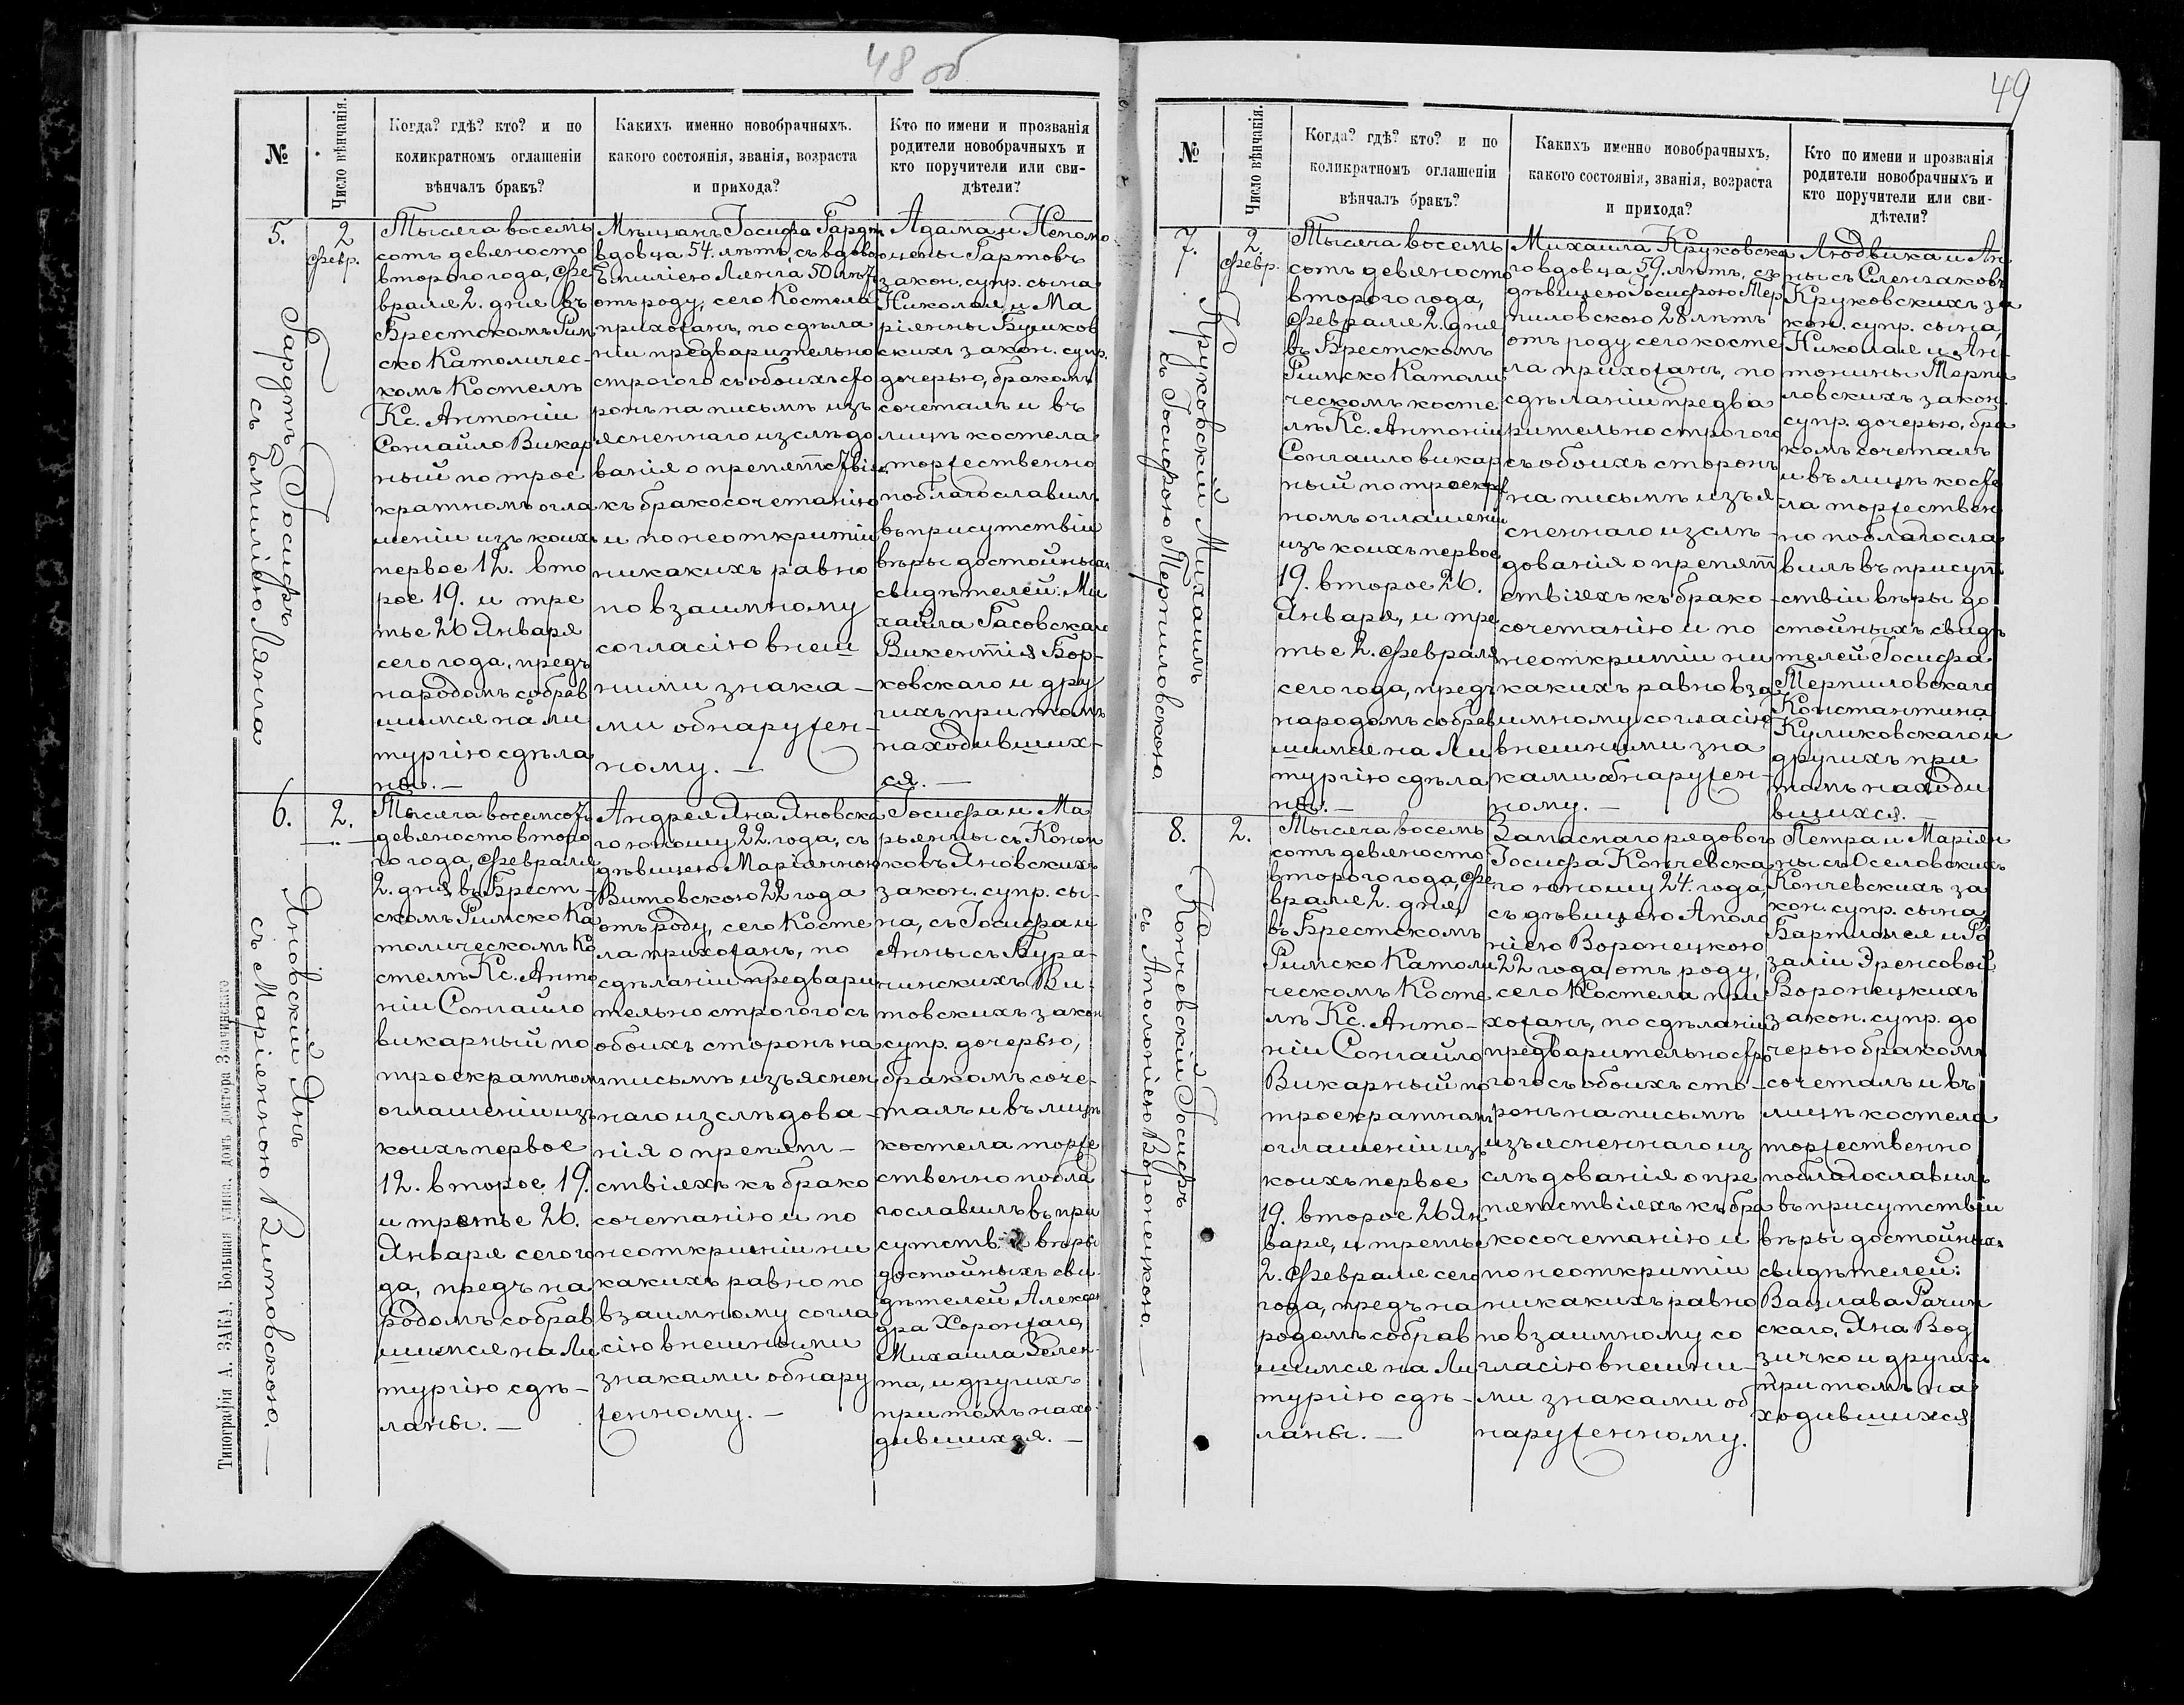 48 об
№
Число вѣнчанія.
Когда? гдѣ? кто? и по
коликратномъ оглашеніи
вѣнчалъ бракъ?
Какихъ именно новобрачныхъ.
какого состоянія, званія, возраста
и прихода?
Кто по имени и прозванія
родители новобрачныхъ и
кто поручители или сви-
дѣтели?
5.
Гардтъ Іосифъ
съ Емиліею Лянга
2
Февр.
Тысяча восемь
сотъ девяносто
второго года, Фе
враля 2. дня въ
Брестскомъ Рим
ско Католичес-
комъ Костелѣ
Кс. Антоній
Сонгайло Викар
ный по трое
кратномъ огла
шеніи изъ коихъ
первое 12. вто
рое 19. и тре
тье 26 Января
сего года, предъ
народомъ собрав
шимся на ли
тургію сдѣла
ны. —
Мѣщанъ Іосифа Гардт
вдовца 54. лѣтъ, съ вдово
Емиліею Лянга 50 лѣтъ
отъ роду, сего Костела
прихожанъ, по сдѣла
ніи предварительно
строгого съ обоихъ сто
ронъ на письмѣ изъ
ясненнаго изслѣдо
ванія о препятствіях
къ бракосочетанію
и по неоткритіи
никакихъ равно
по взаимному
согласію внеш
ними знака-
ми обнаружен-
ному. —
Адама и Непомо
цены Гартовъ
закон. супр. сына
Николая и Ма
ріянны Буйков
скихъ закон. супр.
дочерью, бракомъ
сочеталъ и въ
лицѣ костела
торжественно
поблагославил.
въ присутствіи
вѣры достойныхъ
свидѣтелей: Ми
хайла Гасовскаго
Викентія Бор-
ковскаго и дру
гихъ при томъ
находивших-
ся. —
6.
Яновскій Янъ
съ Маріянною Витовскою. —
2.
Тысяча восемсотъ
девяносто второ
го года, Февраля
2. дня въ Брест-
скомъ Римско Ка
толическомъ Ко
стелѣ Кс. Анто
ній Сонгайло
викарный по
троекратномъ
оглашеніи изъ
коихъ первое
12. второе 19.
и третье 26.
Января сего го
да, предъ на
родомъ собрав
шимся на Ли
тургію сдѣ-
ланы. —
Андрея Яна Яновска
го юношу 22 года, съ
дѣвицею Маріянною
Витовскою 22 года
отъ роду, сего Косте
ла прихожанъ, по
сдѣланіи предвари
тельно строгого съ
обоихъ сторонъ на
письмѣ изъяснен
наго изслѣдова-
нія о препят-
ствіяхъ къ брако
сочетанію и по
неоткритіи ни
какихъ равно по
взаимному согла
сію внешными
знаками обнару
женному. —
Іосифа и Ма
рьянны съ Конон
ковъ Яновскихъ
закон. супр. сы-
на, съ Іосифа и
Анны съ Бура-
чинскихъ Ви-
товскихъ закон
супр. дочерью,
бракомъ соче-
талъ и въ лицѣ
костела торже
ственно побла
гославилъ въ при
сутств. вѣры
достойныхъ сви
дѣтелей Алексан
дра Хоронжаго,
Михаила Зелен-
та, и другихъ
при томъ нахо-
дившихся. —
Типографія А. ЗАКА, Большая улица, домъ доктора Значинскаго
49
№
Число вѣнчанія.
Когда? гдѣ? кто? и по
коликратномъ оглашеніи
вѣнчалъ бракъ?
Какихъ именно новобрачныхъ,
какого состоянія, званія, возраста
и прихода?
Кто по имени и прозванія
родители новобрачныхъ и
кто поручители или сви-
дѣтели?
7.
Круковскій Михаилъ
съ Іосифою Терпиловскою
2.
Февр.
Тысяча восемь
сотъ девяносто
второго года,
Февраля 2. дня
въ Брестскомъ
Римско Католи
ческомъ косте
лѣ Кс. Антоній
Сонгайло викар
ный по троекрат
номъ оглашеніи
изъ коихъ первое
19. второе 26.
Января, и тре
тье 2. Февраля
сего года, предъ
народомъ собрав
шимся на Ли
тургію сдѣла
ны. —
Михаила Круковска
го вдовца 59. лѣтъ, съ
дѣвицею Іосифою Тер
пиловскою 28 лѣтъ
отъ роду сего косте
ла прихожанъ, по
сдѣланіи предва
рительно строгого
съ обоихъ сторонъ
на письмѣ изъя-
сненнаго изслѣ-
дованія о препят
ствіяхъ къ брако-
сочетанію и по
неоткритіи ни
какихъ равно вза
имному согласію
внешними зна
ками обнаружен-
ному. —
Людвика и Ан
ны съ Слензаковъ
Круковскихъ за
кон. супр. сына,
Николая и Ан-
тонины Терпи
ловскихъ закон.
супр. дочерью, бра
комъ сочеталъ
и въ лицѣ косте
ла торжествен
но поблагосла
вилъ въ присут
ствіи вѣры до
стойныхъ свидѣ
телей Іосифа
Терпиловскаго
Константина
Куликовскаго и
другихъ при
томъ находи
вшихся. —
8.
Кончевскій Іосифъ
съ Аполоніею Воронецкою. —
2.
Тысяча восемь
сотъ девяносто
второго года, Фе
враля 2. дня,
въ Брестскомъ
Римско Католи
ческомъ Косте
лѣ Кс. Анто-
ній Сонгайло
Викарный по
троекратномъ
оглашеніи изъ
коихъ первое
19. второе 26 Ян
варя, и третье
2. Февраля сего
года, предъ на
родомъ собрав
шимся на Ли
тургію сдѣ-
ланы. —
Запаснаго рядового
Іосифа Кончевска
го юношу 24. года,
съ дѣвицею Аполо
ніею Воронецкою
22 года отъ роду,
сего Костела при
хожанъ, по сдѣланіи
предварительно стро
гого съ обоихъ сто-
ронъ на письмѣ
изъясненнаго из
слѣдованія о пре
пятствіяхъ къ бра
косочетанію и
по неоткритіи
никакихъ равно
по взаимному со
гласію внешни-
ми знаками об
наруженному.
Петра и Маріян
ны съ Оселовскихъ
Кончевскихъ за
кон. супр. сына,
Бартломея и Ро
заліи Эренсовой
Воронецкихъ
закон. супр. до
черью бракомъ
сочеталъ и въ
лицѣ костела
торжественно
поблагославилъ
въ присутствіи
вѣры достойныхъ
свидѣтелей:
Вацлава Рачин
скаго, Яна Вод
зичко и другихъ
при томъ на
ходившихся